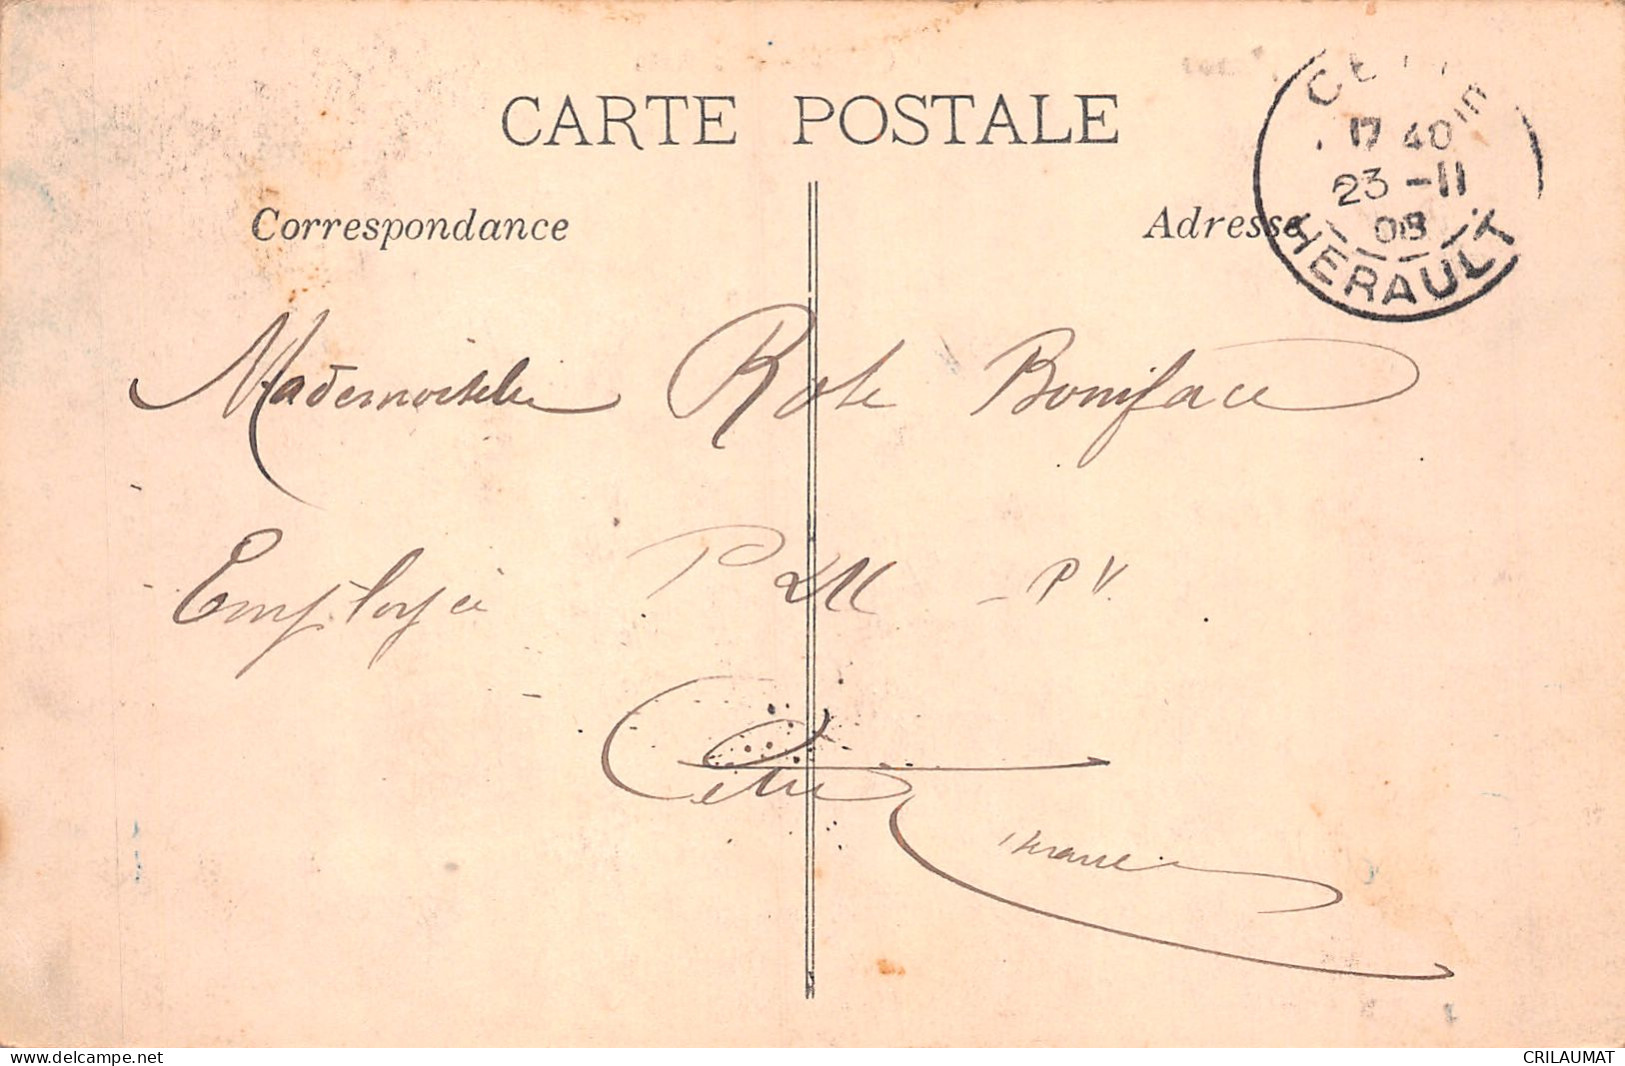 CARTE POSTALE
Correspondance
Adresse
CETTE
17 40
23 -11
08
HERAULT
Mademoiselle Rose Boniface
Employée P L M - P V.
Cette
Herault
www.delcampe.net
CRILAUMAT